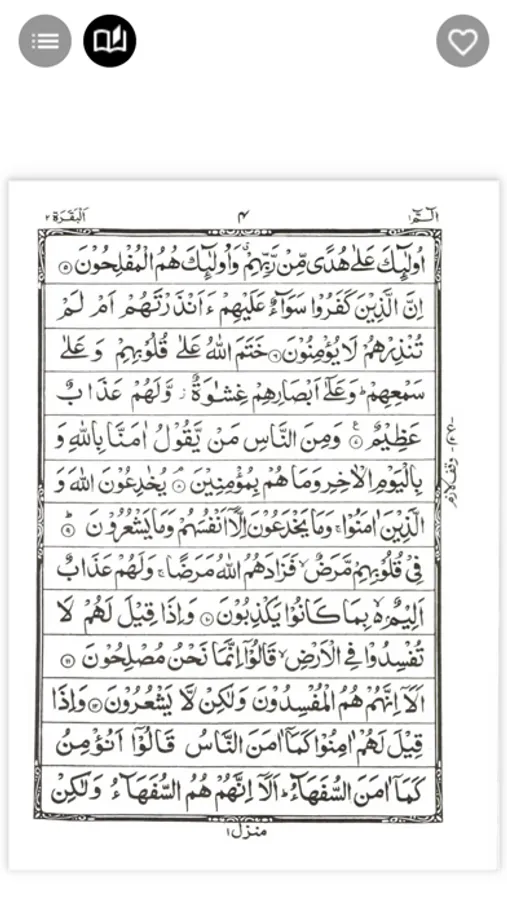 الٓمّٓ ۱ ۴ اَلْبَقَرَة ۲
اُولٰٓئِكَ عَلٰى هُدًى مِّنْ رَّبِّهِمْ ۙ وَاُولٰٓئِكَ هُمُ الْمُفْلِحُوْنَ ۵
اِنَّ الَّذِيْنَ كَفَرُوْا سَوَآءٌ عَلَيْهِمْ ءَاَنْذَرْتَهُمْ اَمْ لَمْ
تُنْذِرْهُمْ لَا يُؤْمِنُوْنَ ۶ خَتَمَ اللّٰهُ عَلٰى قُلُوْبِهِمْ وَعَلٰى
سَمْعِهِمْ ؕ وَعَلٰٓى اَبْصَارِهِمْ غِشَاوَةٌ ز وَّلَهُمْ عَذَابٌ
عَظِيْمٌ ۷ وَمِنَ النَّاسِ مَنْ يَّقُوْلُ اٰمَنَّا بِاللّٰهِ وَ
بِالْيَوْمِ الْاٰخِرِ وَمَا هُمْ بِمُؤْمِنِيْنَ ۘ ۸ يُخٰدِعُوْنَ اللّٰهَ وَ
الَّذِيْنَ اٰمَنُوْا ۚ وَمَا يَخْدَعُوْنَ اِلَّاۤ اَنْفُسَهُمْ وَمَا يَشْعُرُوْنَ ؕ ۹
فِيْ قُلُوْبِهِمْ مَّرَضٌ ۙ فَزَادَهُمُ اللّٰهُ مَرَضًا ۚ وَلَهُمْ عَذَابٌ
اَلِيْمٌ ۢ ۙ بِمَا كَانُوْا يَكْذِبُوْنَ ۱۰ وَاِذَا قِيْلَ لَهُمْ لَا
تُفْسِدُوْا فِي الْاَرْضِ ۙ قَالُوْۤا اِنَّمَا نَحْنُ مُصْلِحُوْنَ ۱۱
اَلَاۤ اِنَّهُمْ هُمُ الْمُفْسِدُوْنَ وَلٰكِنْ لَّا يَشْعُرُوْنَ ۱۲ وَاِذَا
قِيْلَ لَهُمْ اٰمِنُوْا كَمَاۤ اٰمَنَ النَّاسُ قَالُوْۤا اَنُؤْمِنُ
كَمَاۤ اٰمَنَ السُّفَهَآءُ ؕ اَلَاۤ اِنَّهُمْ هُمُ السُّفَهَآءُ وَلٰكِنْ
وقف لازم
منزل ۱